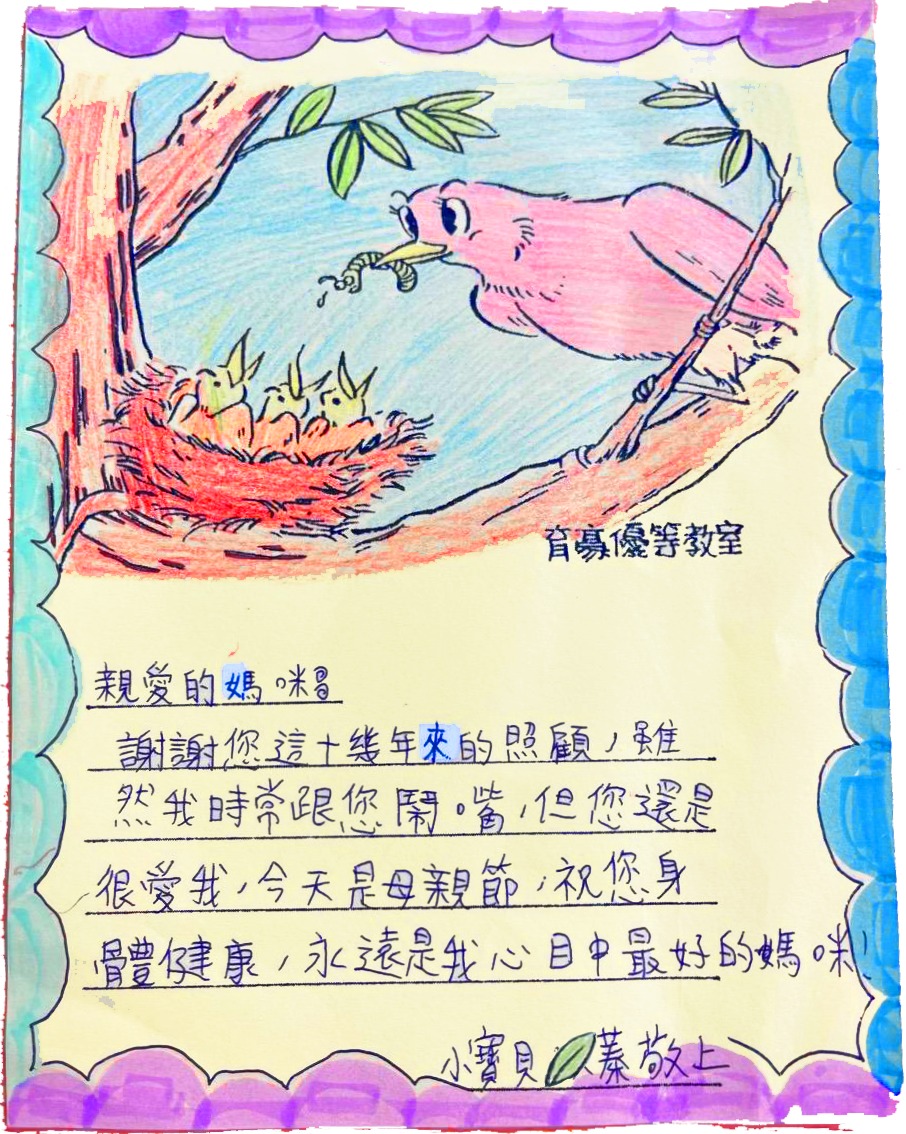 育豪優等教室
親愛的媽咪
謝謝您這十幾年來的照顧，雖
然我時常跟您鬧嘴，但您還是
很愛我，今天是母親節，祝您身
體健康，永遠是我心目中最好的媽咪！
小寶貝 蓁敬上